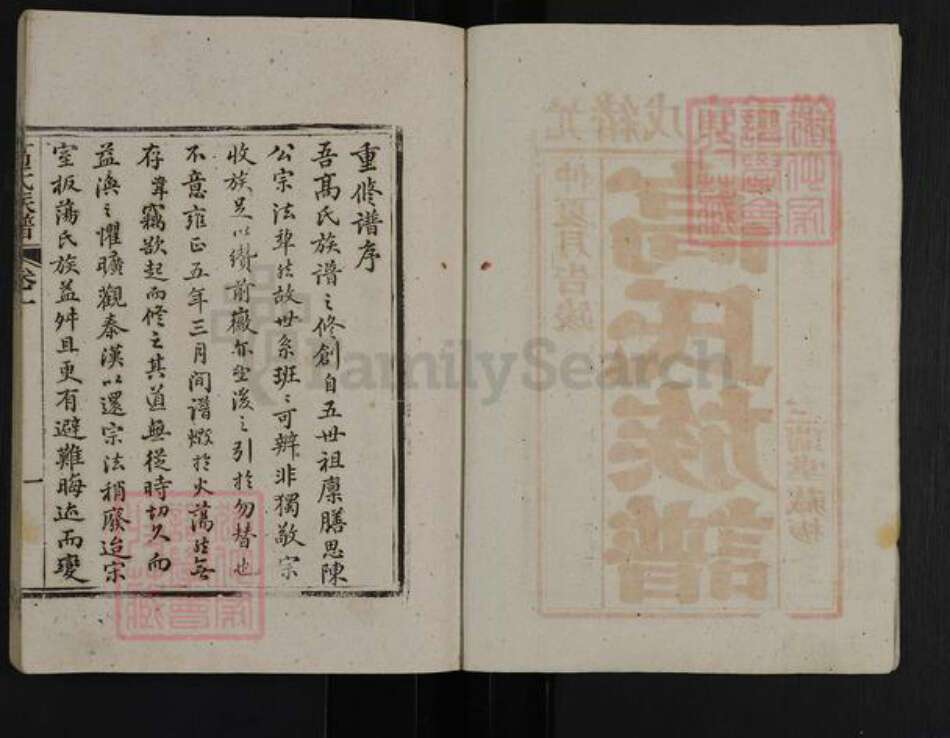 重修譜序
吾高氏族譜之修創自五世祖廩膳思陳
公宗法犂然故世系班班可辨非獨敬宗
收族足以纘前徽亦垂後之引於勿替也
不意雍正五年三月間譜燬於火蕩然無
存諱竊欲起而修之其道無從時切久而
益渙之懼曠觀秦漢以還宗法稍廢迨宋
室板蕩氏族益舛且更有避難晦迹而變
高氏族譜 卷一 一
光緒戊寅
仲夏月告竣
高氏族譜
FamilySearch